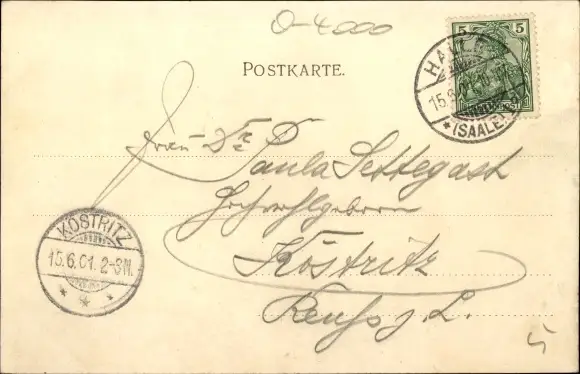 O-4000
5 5
HALLE
15.6.01.
*(SAALE)
POSTKARTE.
Frau Dr.
Paula Settegast
Hochwohlgeboren
Köstritz
Reuß j. L.
KÖSTRITZ
15.6.01. 2-3N.